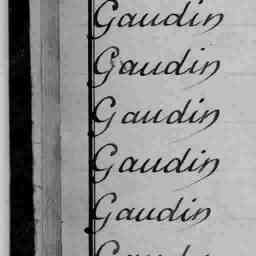 Gaudin
Gaudin
Gaudin
Gaudin
Gaudin